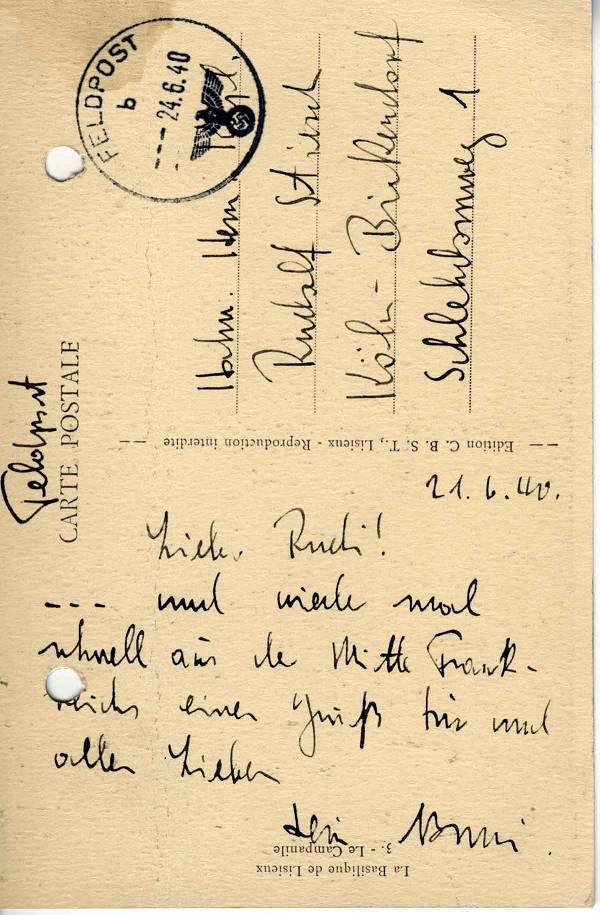 Feldpost
CARTE POSTALE
FELDPOST
b
--- 24.6.40
Rudolf
Köln - Bickendorf
Schlehdornweg 1
Edition C. B. S. T., Lisieux - Reproduction interdite
21.6.40.
Lieber Rudi!
--- und wieder mal
schnell aus der Mitte Frank-
reichs einen Gruß Dir und
allen Lieben
Dein
La Basilique de Lisieux
3. - Le Campanile